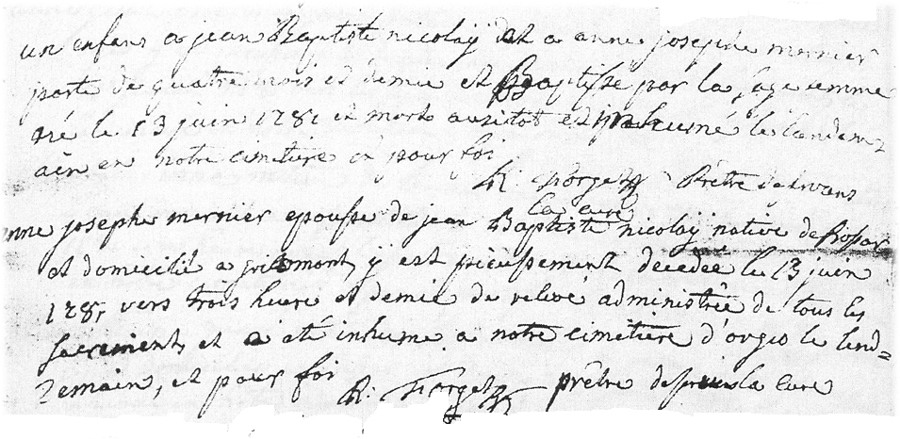 un enfans a jean Baptiste nicolaÿ et a anne josephe mernier
porté de quatre mois et demie et Baptise par la sage femme
né le 13 juin 178. et morts ausitot et inhumé le lendem=
ain en notre cimetiere et pour foi
R: Prêtre deservans
la cure
anne josephe mernier epousse de jean Baptiste nicolaÿ native de
et domicilié a y est pieussement decedée le 13 juin
178. vers trois heure et demie de relevé administrée de tous les
sacrement, et a eté inhume a notre cimetiere d'orgeo le lend=
emain, et pour foi R: prêtre la cure